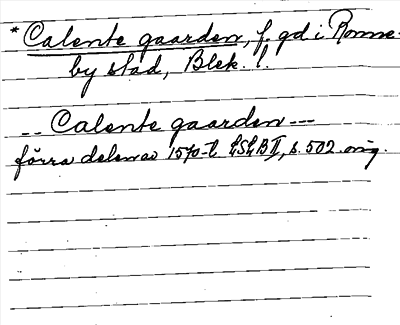 * Calente gaarden, f. gd i Ronne-
by stad, Blek. l.
-- Calente gaarden ---
förra delen av 1570-t. LSLB II, s. 502. orig.